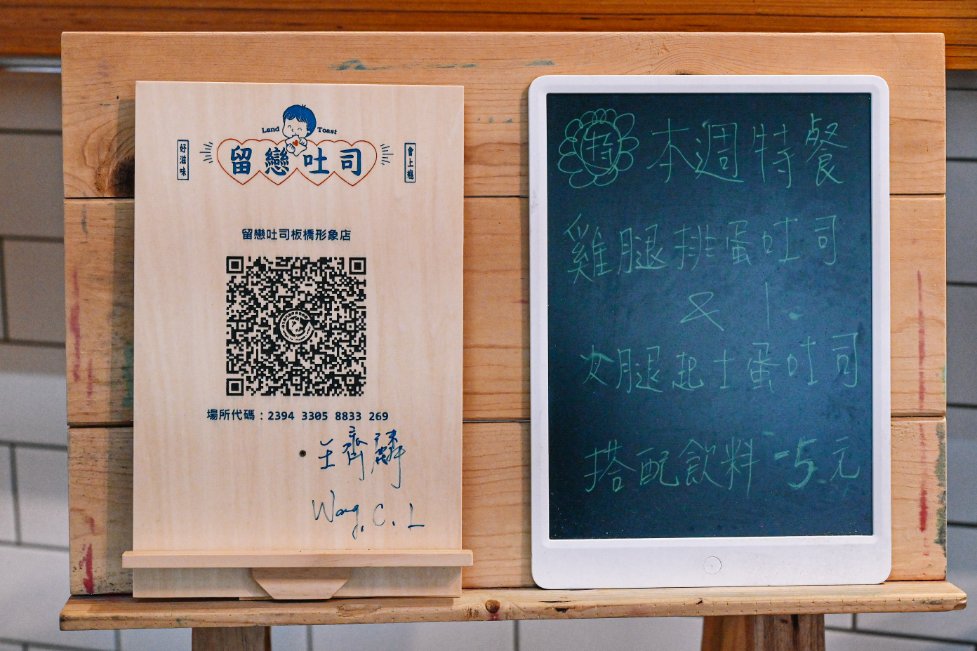 Land Toast
好滋味
留戀吐司
會上癮
留戀吐司板橋形象店
場所代碼：2394 3305 8833 269
王齊麟
Wang C. L
特 本週特餐
雞腿排蛋吐司
&
火腿起士蛋吐司
搭配飲料 -5元